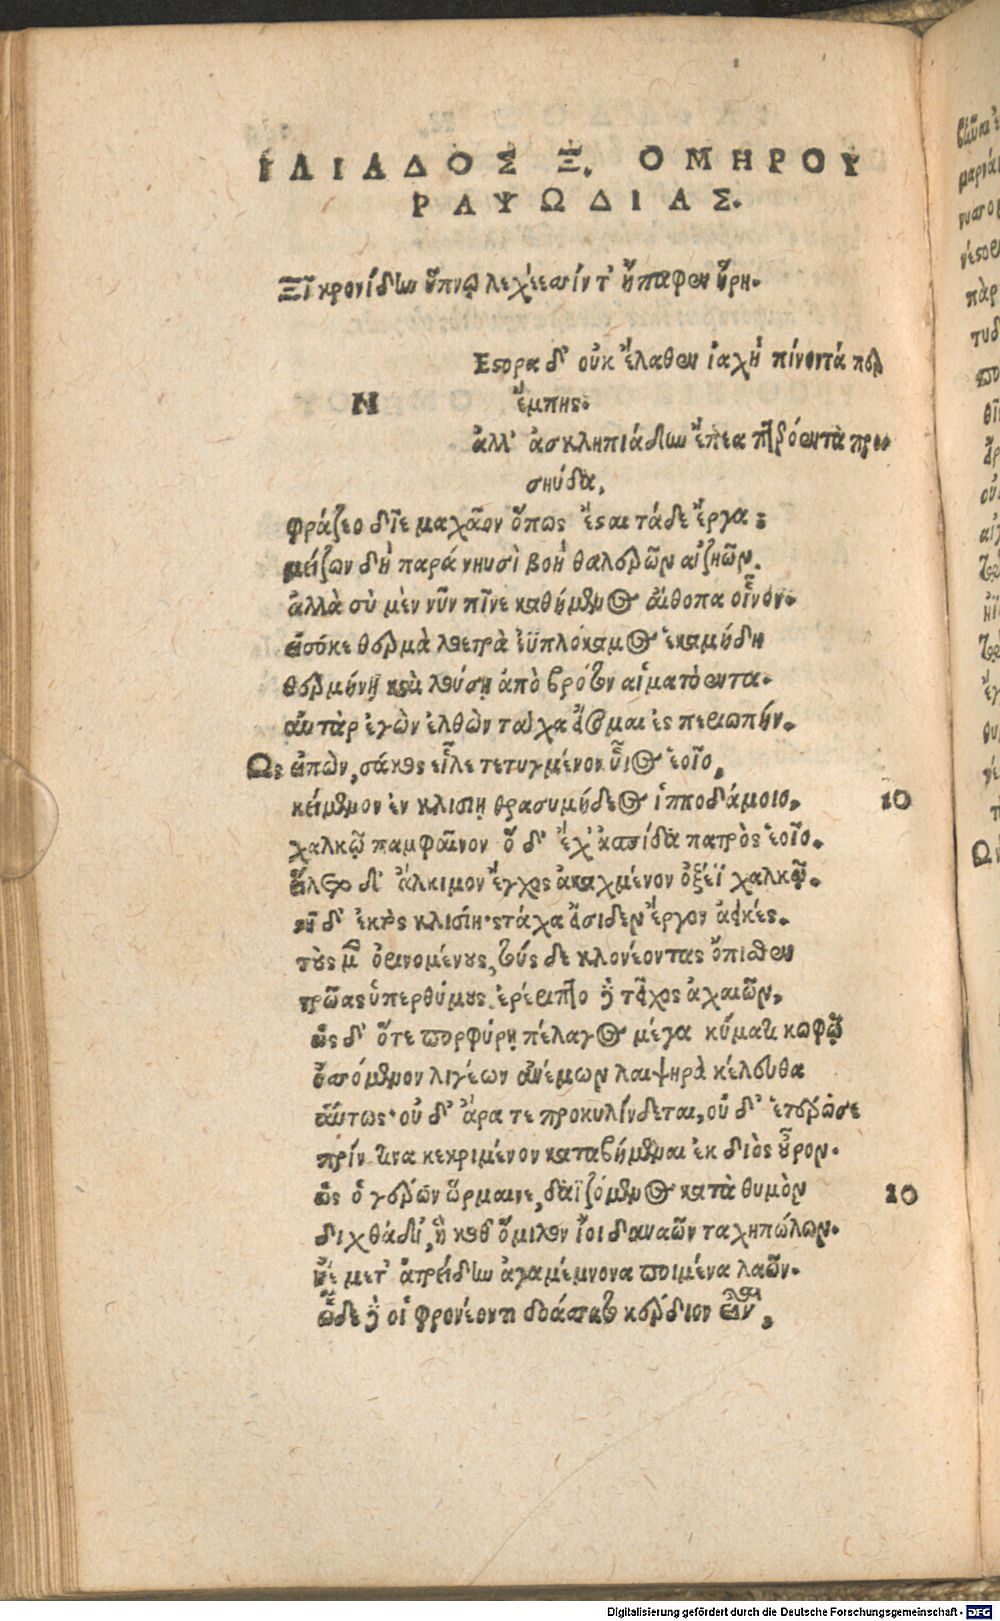 ΙΛΙΑΔΟΣ Ξ. ΟΜΗΡΟΥ
ΡΑΨΩΔΙΑΣ.
Ξῖ κρονίδην ὕπνῳ λεχέεσσίν τ' ἤπαφεν ἥρη.
Εςορα δ' οὐκ ἔλαθεν ἰαχὴ πίνοντά περ
Ν ἔμπης.
ἀλλ' ἀσκληπιάδην ἔπεα πτερόεντα προ-
σηύδα,
φράζεο δῖε μαχᾶον ὅπως ἔςαι τάδε ἔργα:
μείζων δὴ παρά νηυσὶ βοὴ θαλερῶν αἰζηῶν.
ἀλλὰ σὺ μὲν νῦν πῖνε καθήμενος αἴθοπα οἶνον.
εἰσόκε θερμὰ λοετρὰ ἐϋπλόκαμος ἑκαμήδη
θερμήνῃ καὶ λούσῃ ἀπὸ βρότον αἱματόεντα.
αὐτὰρ ἐγὼν ἐλθὼν τάχα εἴσομαι ἐς περιωπήν.
Ως εἰπὼν, σάκος εἷλε τετυγμένον υἷος ἑοῖο,
κείμενον ἐν κλισίῃ θρασυμήδεος ἱπποδάμοιο, 10
χαλκῷ παμφαῖνον ὅ δ' ἔχ' ἀσπίδα πατρὸς ἑοῖο.
εἵλετο δ' ἄλκιμον ἔγχος ἀκαχμένον ὀξέϊ χαλκῷ.
ςῆ δ' ἐκτὸς κλισίης τάχα δ' εἴσιδεν ἔργον ἀεικές.
τοὺς μὲν ὀρινομένους, τοὺς δε κλονέοντας ὄπισθεν
τρῶας ὑπερθύμους. ἐρέριπτο δὲ τεῖχος ἀχαιῶν,
ὡς δ' ὅτε πορφύρῃ πέλαγος μέγα κύματι κωφῷ
ὀσσόμενον λιγέων ἀνέμων λαιψηρὰ κέλευθα
αὔτως· οὐ δ' ἄρα τε προκυλίνδεται, οὐ δ' ἑτέρωσε
πρίν τινα κεκριμένον καταβήμεναι ἐκ διὸς οὖρον.
ὣς ὁ γέρων ὥρμαινε, δαϊζόμενος κατὰ θυμὸν 20
διχθάδι', ἢ μεθ' ὅμιλον ἴοι δαναῶν ταχηπώλων.
ἠὲ μετ' ἀτρείδην ἀγαμέμνονα ποιμένα λαῶν.
ὧδε δὲ οἱ φρονέοντι δοάσσατο κέρδιον εἶναι,
Digitalisierung gefördert durch die Deutsche Forschungsgemeinschaft - DFG